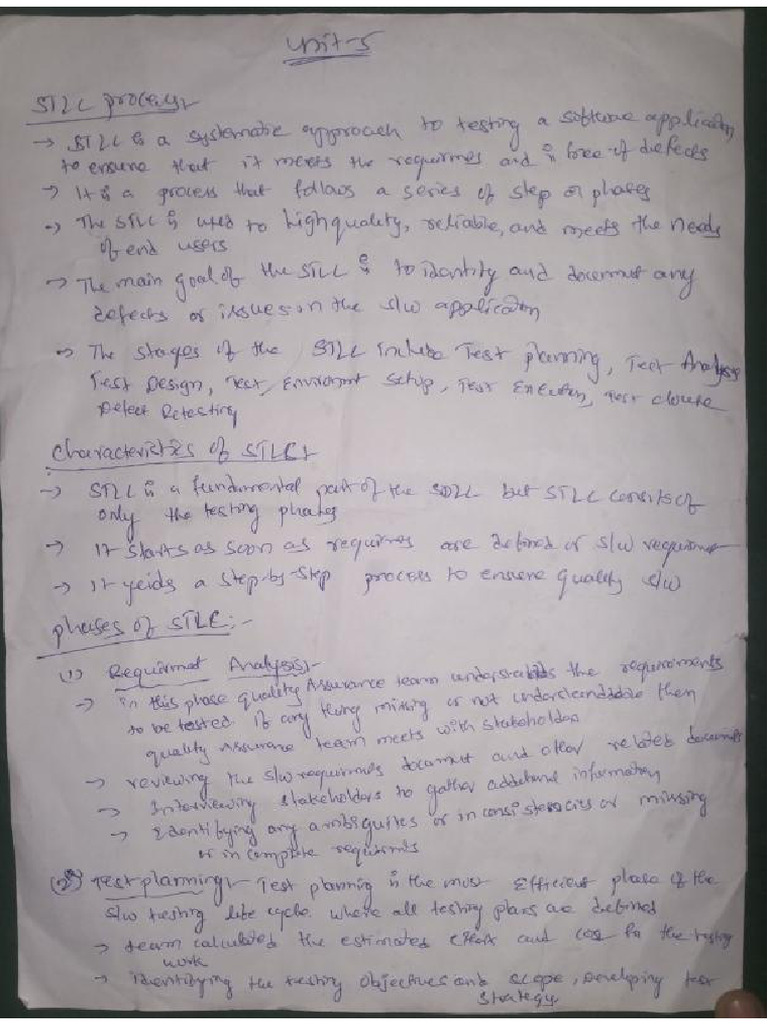 Unit-5
STLC process:-
→ STLC is a systematic approach to testing a software application
to ensure that it meets the requirmes and is free of defects
→ It is a process that follows a series of step or phases
→ The STLC is used to high quality, reliable, and meets the needs
of end users
→ The main goal of the STLC is to identity and document any
defects or issues in the s/w application
→ The stages of the STLC include Test planning, Test Analysis
Test Design, Test Environt Setup, Test Execution, Test closure
Defect Retesting
Characteristics of STLC:-
→ STLC is a fundamental part of the SDLC but STLC consits of
only the testing phases
→ It starts as soon as requirmes are defined or s/w requirmet
→ It yeids a step-by-step process to ensure quality s/w
phases of STLC:-
(1) Requirmet Analysis:-
→ in this phase quality Assurance team understands the requirements
to be tested. If any thing missing or not understanddable then
quality Assurance team meets with stakeholdes
→ reviewing the s/w requirmes document and other related documents
→ Interviewing stakeholdors to gather addetional information
→ Identifying any ambiguites or inconsistencies or missing
or in complete requirmts
(2) Test planning:- Test planning is the most Efficient phase of the
s/w testing life cycle where all testing plans are defined
→ team calculated the estimated effort and cost for the testing
work
→ identifying the testing objectives and scope, Developing test
strategy